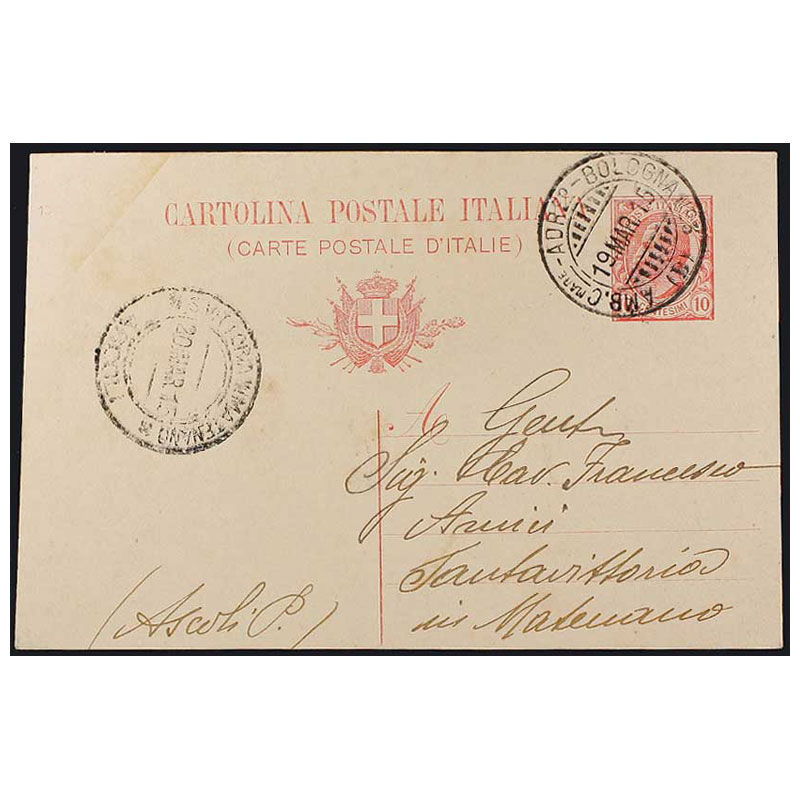 CARTOLINA POSTALE ITALIANA
(CARTE POSTALE D'ITALIE)
AMB. Cmare - ADRco - BOLOGNA
19 MAR 15
10
CENTESIMI
S. VITTORIA IN MATENANO
20 MAR 15
A Gent.
Sig. Cav. Francesco
Amici
Santavittoria
in Matenano
(Ascoli P.)